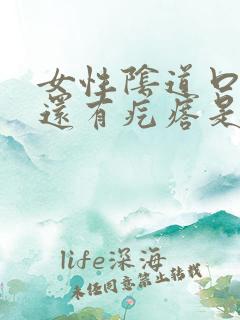 女性陰道口
還有疙瘩是
life深海
未经同意禁止转载